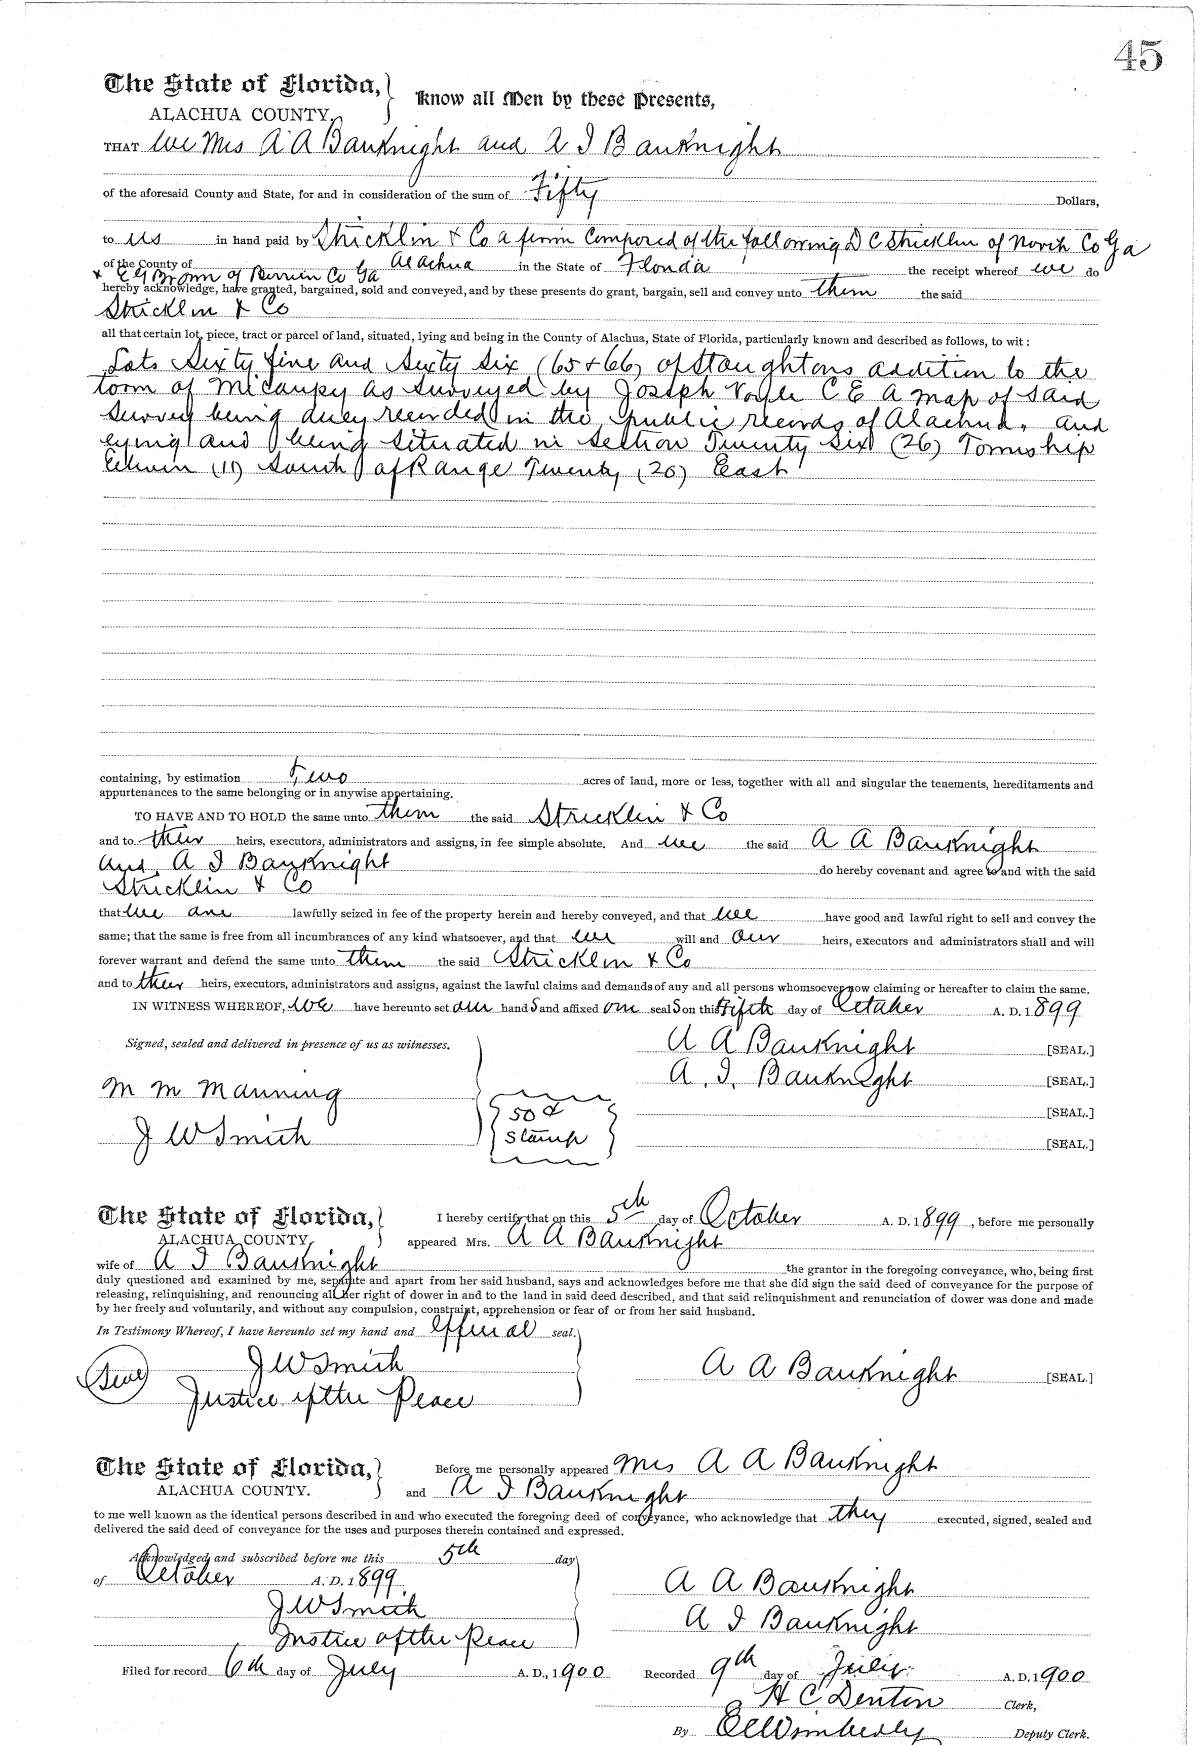 45
The State of Florida, } Know all Men by these Presents,
ALACHUA COUNTY.
THAT We Mrs A A Bauknight and A I Bauknight
of the aforesaid County and State, for and in consideration of the sum of Fifty Dollars,
to us in hand paid by Stricklin & Co a firm Composed of the following D C Stricklin of Worth Co Ga
of the County of Alachua in the State of Florida the receipt whereof we do
& E G Brown of Berrien Co Ga
hereby acknowledge, have granted, bargained, sold and conveyed, and by these presents do grant, bargain, sell and convey unto them the said
Stricklin & Co
all that certain lot, piece, tract or parcel of land, situated, lying and being in the County of Alachua, State of Florida, particularly known and described as follows, to wit:
Lots Sixty five and Sixty Six (65 & 66) of Staughtons addition to the
town of Micanpy as surveyed by Joseph Voyle C E A map of said
survey being duly recorded in the public records of Alachua, and
lying and being situated in Section Twenty Six (26) Township
Eleven (11) South of Range Twenty (20) East
containing, by estimation Two acres of land, more or less, together with all and singular the tenements, hereditaments and
appurtenances to the same belonging or in anywise appertaining.
TO HAVE AND TO HOLD the same unto them the said Stricklin & Co
and to their heirs, executors, administrators and assigns, in fee simple absolute. And we the said A A Bauknight
and A I Bauknight do hereby covenant and agree to and with the said
Stricklin & Co
that we are lawfully seized in fee of the property herein and hereby conveyed, and that we have good and lawful right to sell and convey the
same; that the same is free from all incumbrances of any kind whatsoever, and that we will and our heirs, executors and administrators shall and will
forever warrant and defend the same unto them the said Stricklin & Co
and to their heirs, executors, administrators and assigns, against the lawful claims and demands of any and all persons whomsoever now claiming or hereafter to claim the same.
IN WITNESS WHEREOF, We have hereunto set our hands and affixed our seals on this fifth day of October A. D. 1899
Signed, sealed and delivered in presence of us as witnesses.
A A Bauknight [SEAL.]
A. I. Bauknight [SEAL.]
M M Manning
[SEAL.]
50¢
Stamp
J W Smith
[SEAL.]
The State of Florida, } I hereby certify that on this 5th day of October A. D. 1899, before me personally
ALACHUA COUNTY. appeared Mrs. A A Bauknight
wife of A I Bauknight the grantor in the foregoing conveyance, who, being first
duly questioned and examined by me, separate and apart from her said husband, says and acknowledges before me that she did sign the said deed of conveyance for the purpose of
releasing, relinquishing, and renouncing all her right of dower in and to the land in said deed described, and that said relinquishment and renunciation of dower was done and made
by her freely and voluntarily, and without any compulsion, constraint, apprehension or fear of or from her said husband.
In Testimony Whereof, I have hereunto set my hand and official seal.
J W Smith
A A Bauknight [SEAL.]
(Seal)
Justice of the Peace
The State of Florida, } Before me personally appeared Mrs A A Bauknight
ALACHUA COUNTY. and A I Bauknight
to me well known as the identical persons described in and who executed the foregoing deed of conveyance, who acknowledge that they executed, signed, sealed and
delivered the said deed of conveyance for the uses and purposes therein contained and expressed.
Acknowledged and subscribed before me this 5th day
of October A. D. 1899
A A Bauknight
J W Smith
A I Bauknight
Justice of the Peace
Filed for record 6th day of July A. D., 1900 Recorded 9th day of July A. D. 1900
H C Denton Clerk,
By E E Wimberly Deputy Clerk.